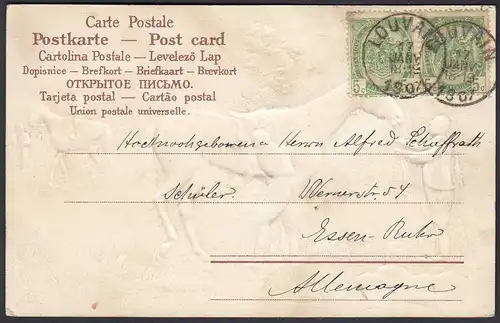 Carte Postale
Postkarte — Post card
Cartolina Postale — Levelező Lap
Dopisnice — Brefkort — Briefkaart — Brevkort
ОТКРЫТОЕ ПИСЬМО.
Tarjeta postal — Cartão postal
Union postale universelle.
LOUVAIN
17
JANV
1907
LOUVAIN
17
JANV
1907
5c
5c
Hochwohgeborenen Herrn Alfred Schaffrath
Schüler. Wernerstr. 54
Essen-Ruhr
Allemagne